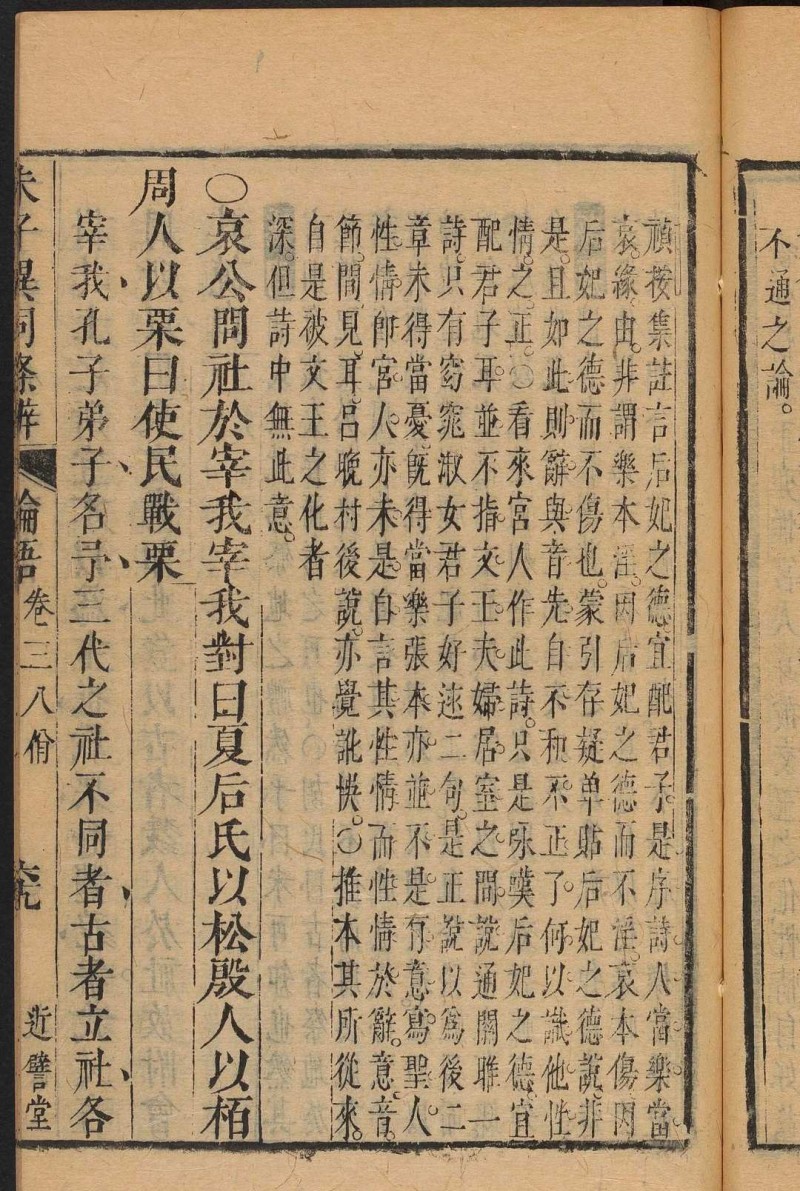 不通之論。
頑按集註言后妃之德宜配君子是序詩人當樂當
哀緣由非謂樂本淫因后妃之德而不淫哀本傷因
后妃之德而不傷也蒙引存疑單貼后妃之德說非
是且如此則辭與音先自不和不正了何以識他性
情之正○看來宮人作此詩只是咏嘆后妃之德宜
配君子耳並不指文王夫婦居室之間說通關雎一
詩只有窈窕淑女君子好逑二句是正說以為後二
章未得當憂既得當樂張本亦並不是有意寫聖人
性情即宮人亦未是自言其性情而性情於辭意音
節間見耳呂晚村後說亦覺訛快○推本其所從來
自是被文王之化者
深但詩中無此意
○哀公問社於宰我宰我對曰夏后氏以松殷人以栢
周人以栗曰使民戰栗
宰我孔子弟子名予三代之社不同者古者立社各
朱子異同條辨 論語 卷三 八佾 近譬堂